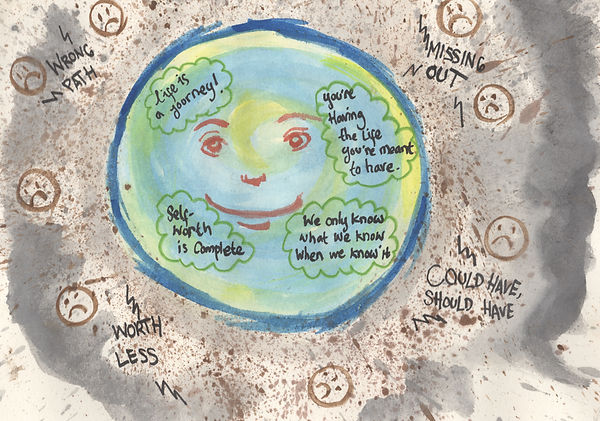 WRONG
PATH
MISSING
OUT
life is
a journey!
you're
Having
the life
you're meant
to have.
Self-
Worth
is Complete
We only know
what we know
when we know it
COULD HAVE,
SHOULD HAVE
WORTH
LESS